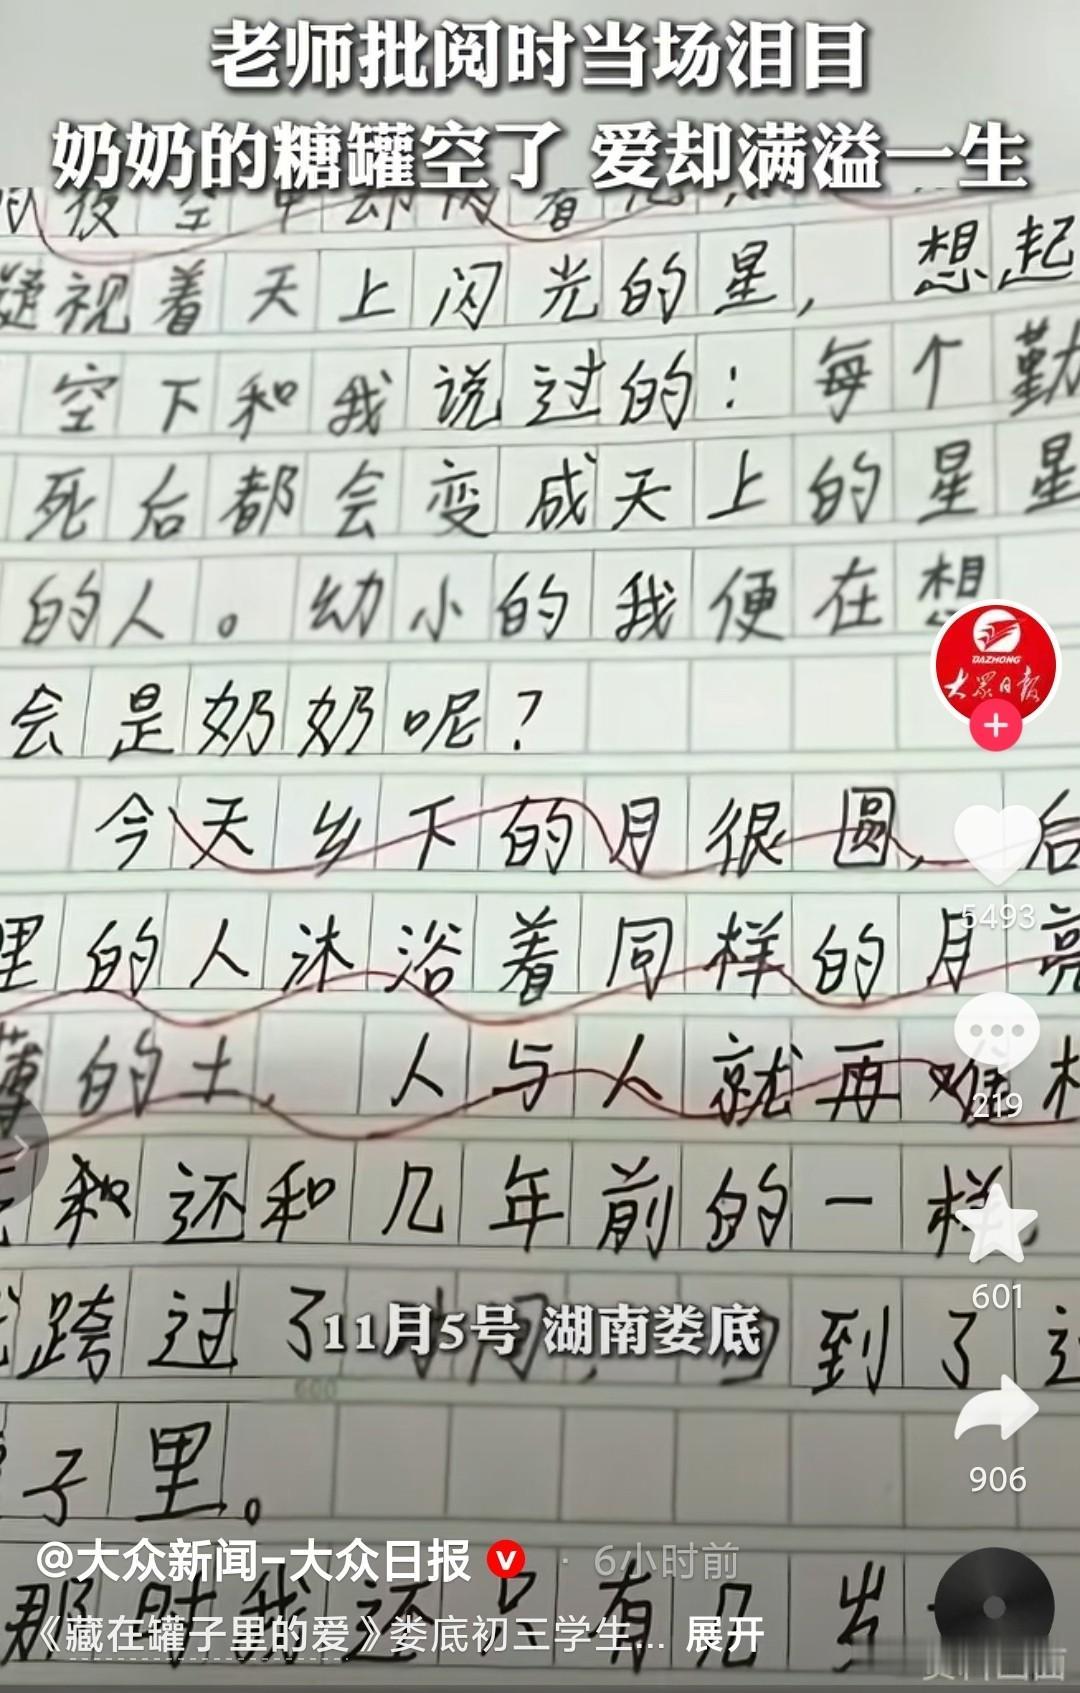 老师批阅时当场泪目
奶奶的糖罐空了 爱却满溢一生
夜空中却闪着
凝视着天上闪光的星，想起
空下和我说过的：每个勤
死后都会变成天上的星星
的人。幼小的我便在想
会是奶奶呢？
DAZHONG
大众日报
今天乡下的月很圆，后
5493
里的人沐浴着同样的月亮
薄的土，人与人就再难
219
和还和几年前的一样，
601
跨过了时间，回到了这
11月5号 湖南娄底
906
子里。
@大众新闻-大众日报 · 6小时前
那时我还只有几岁
《藏在罐子里的爱》娄底初三学生... 展开
600